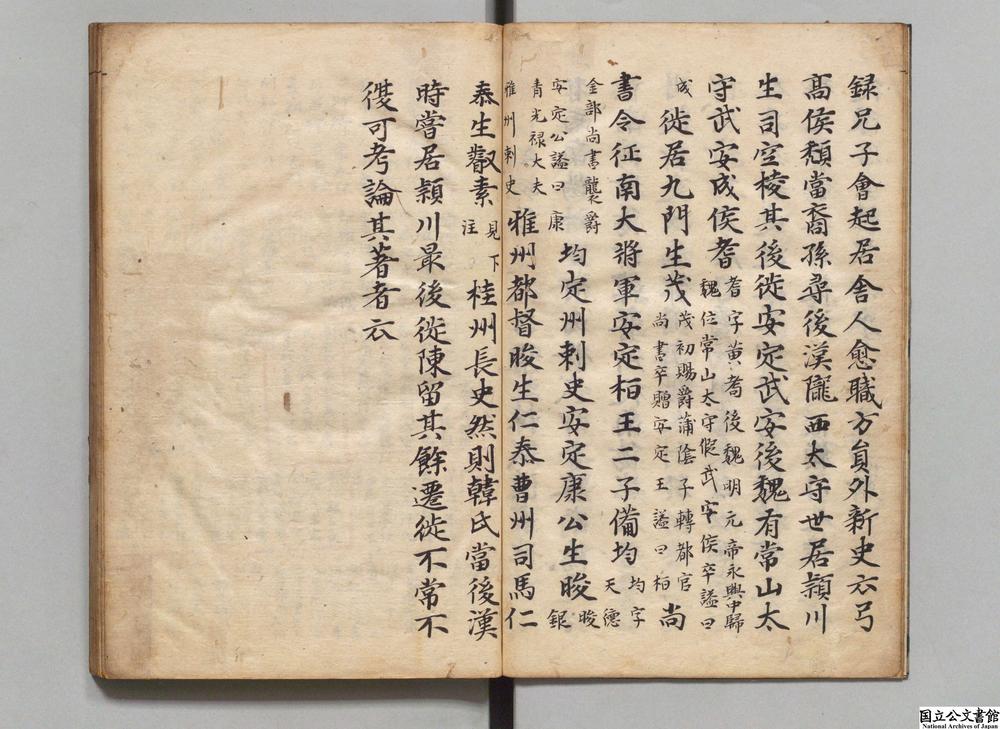 録兄子會起居舎人愈職方員外新史云弓
髙侯頽當裔孫尋後漢隴西太守世居潁川
生司空稜其後徙安定武安後魏有常山太
守武安成侯耆
耆字黄耇後魏明元帝永興中歸
魏位常山太守假武安侯卒謚曰
成
徙居九門生茂
茂初賜爵蒲陰子轉都官
尚書卒贈安定王謚曰栢
尚
書令征南大將軍安定栢王二子備均
均字
天德
金部尚書襲爵
安定公謚曰康
均定州刺史安定康公生晙
晙
銀
青光禄大夫
雅州刺史
雅州都督晙生仁泰曹州司馬仁
泰生叡素
見下
注
桂州長史然則韓氏當後漢
時嘗居潁川最後徙陳留其餘遷徙不常不
復可考論其著者云
国立公文書館
National Archives of Japan